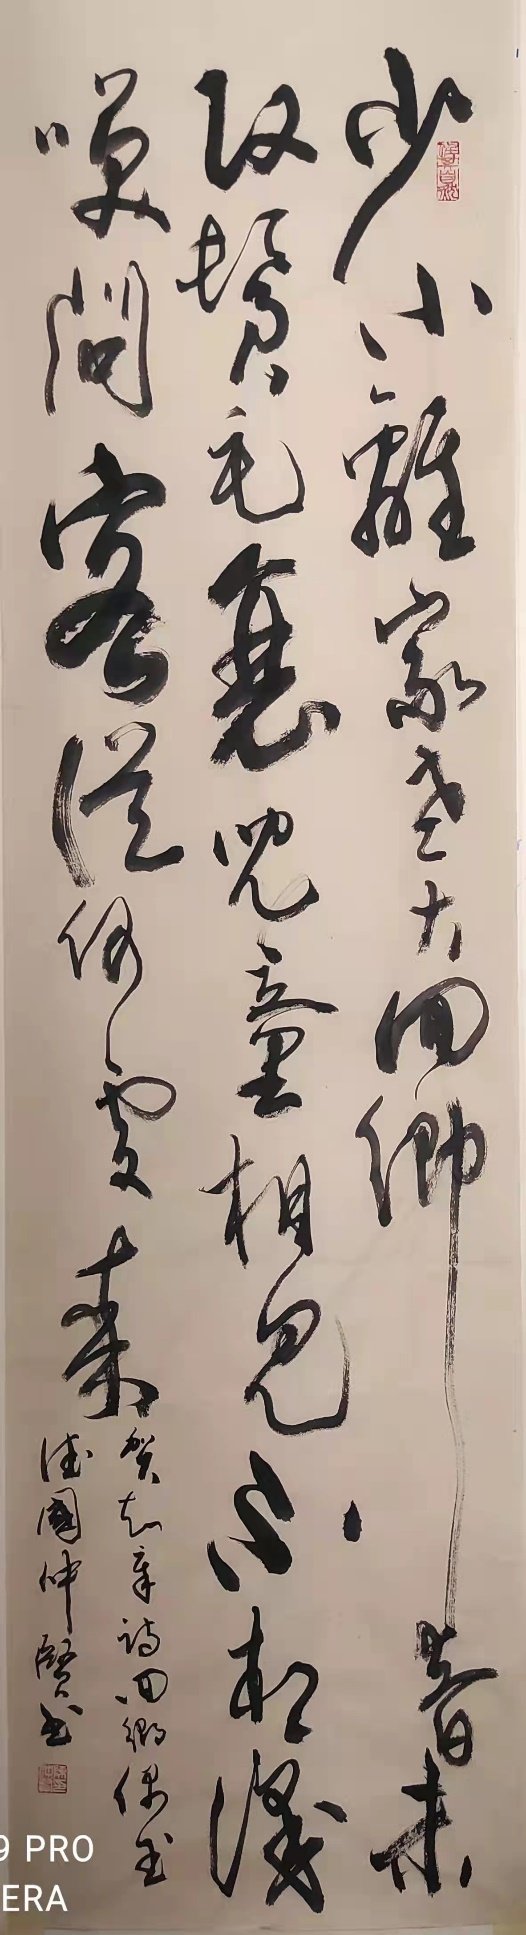 少小離家老大回鄉音未
改鬢毛衰兒童相見不相識
笑問客從何處來
賀知章詩回鄉偶書
國仲賢書
9 PRO
ERA